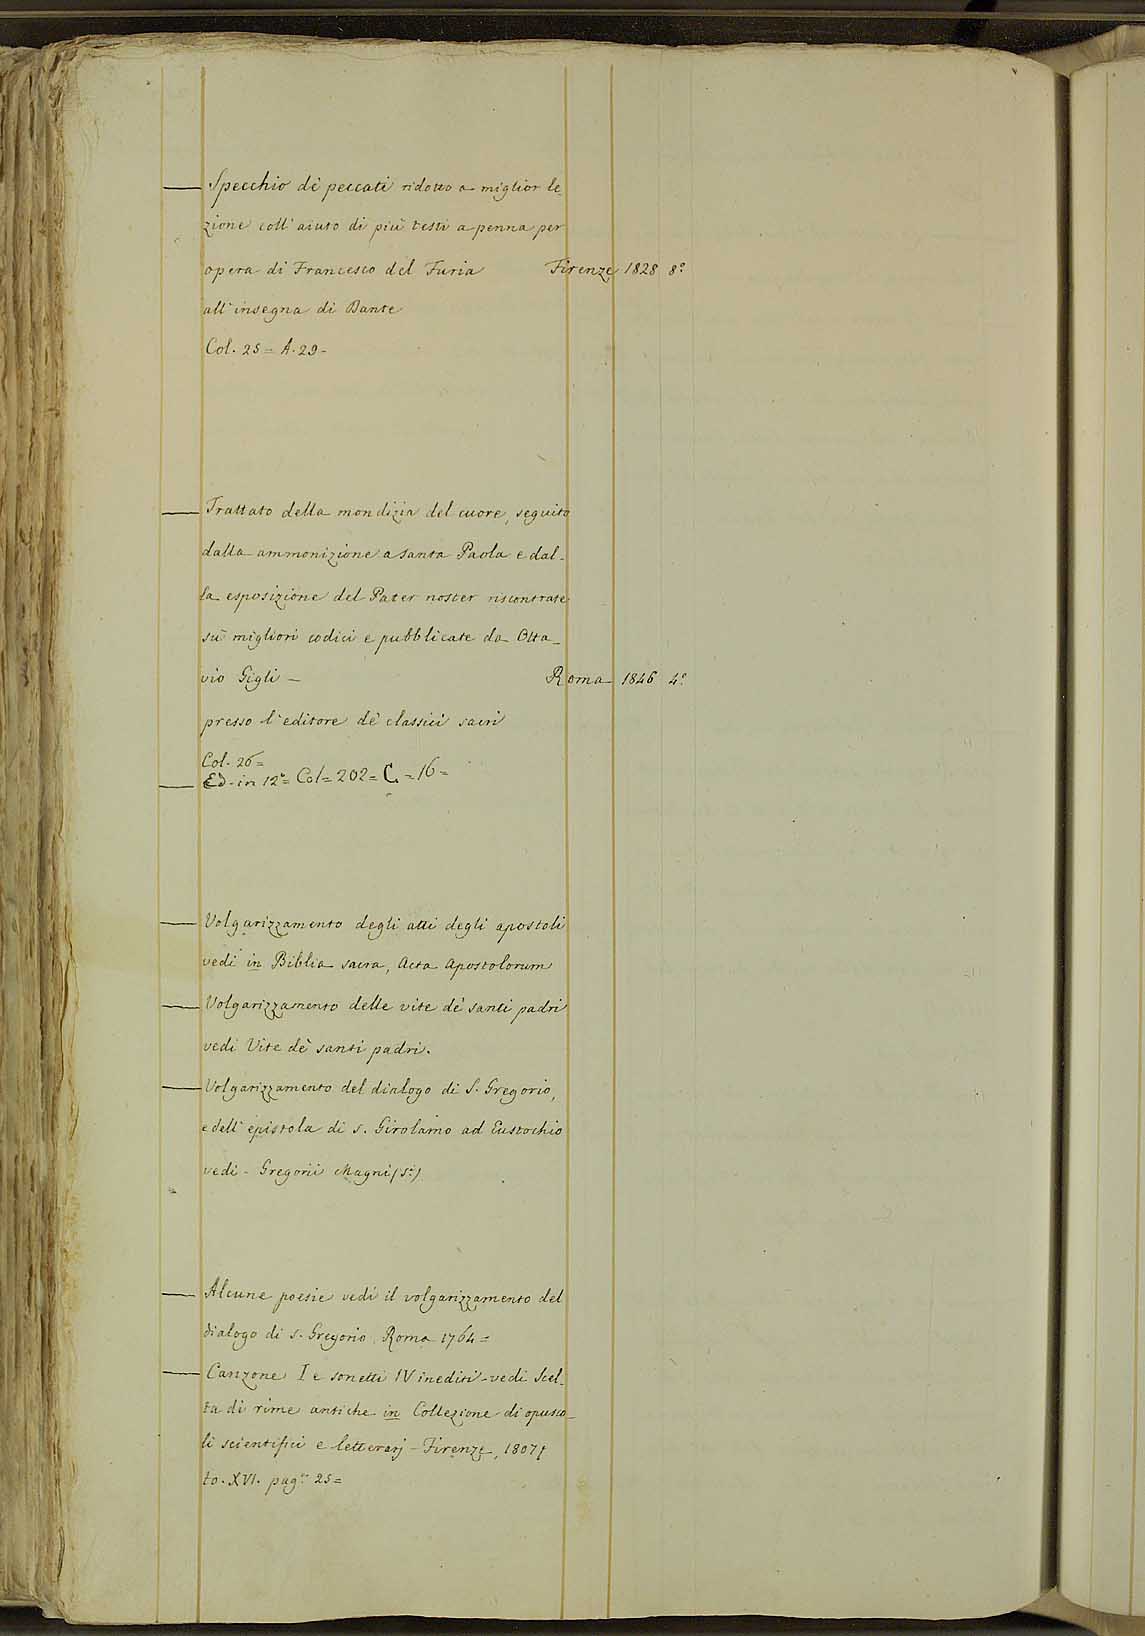 — Specchio di peccati ridotto a miglior le-
zione coll' aiuto di più testi a penna per
opera di Francesco del Furia Firenze 1828 8°
all' insegna di Dante
Col. 25 = A. 29 -
— Trattato della mondizia del cuore, seguito
dalla ammonizione a santa Paola e dal-
la esposizione del Pater noster riscontrate
su' migliori codici e pubblicate da Otta-
vio Gigli — Roma 1846 4°
presso l' editore de' classici sacri
Col. 26 =
— Ed - in 12° = Col = 202 = C. = 16 =
— Volgarizzamento degli atti degli apostoli
vedi in Biblia sacra, Acta Apostolorum
— Volgarizzamento delle vite de' santi padri
vedi Vite de' santi padri.
— Volgarizzamento del dialogo di S. Gregorio,
e dell' epistola di S. Girolamo ad Eustochio
vedi - Gregorii Magni (S.i)
— Alcune poesie vedi il volgarizzamento del
dialogo di S. Gregorio. Roma 1764 =
— Canzone I e sonetti IV inediti - vedi Scel-
ta di rime antiche in Collezione di opusco-
li scientifici e letterarj - Firenze, 1807
to. XVI. pag. 25 =